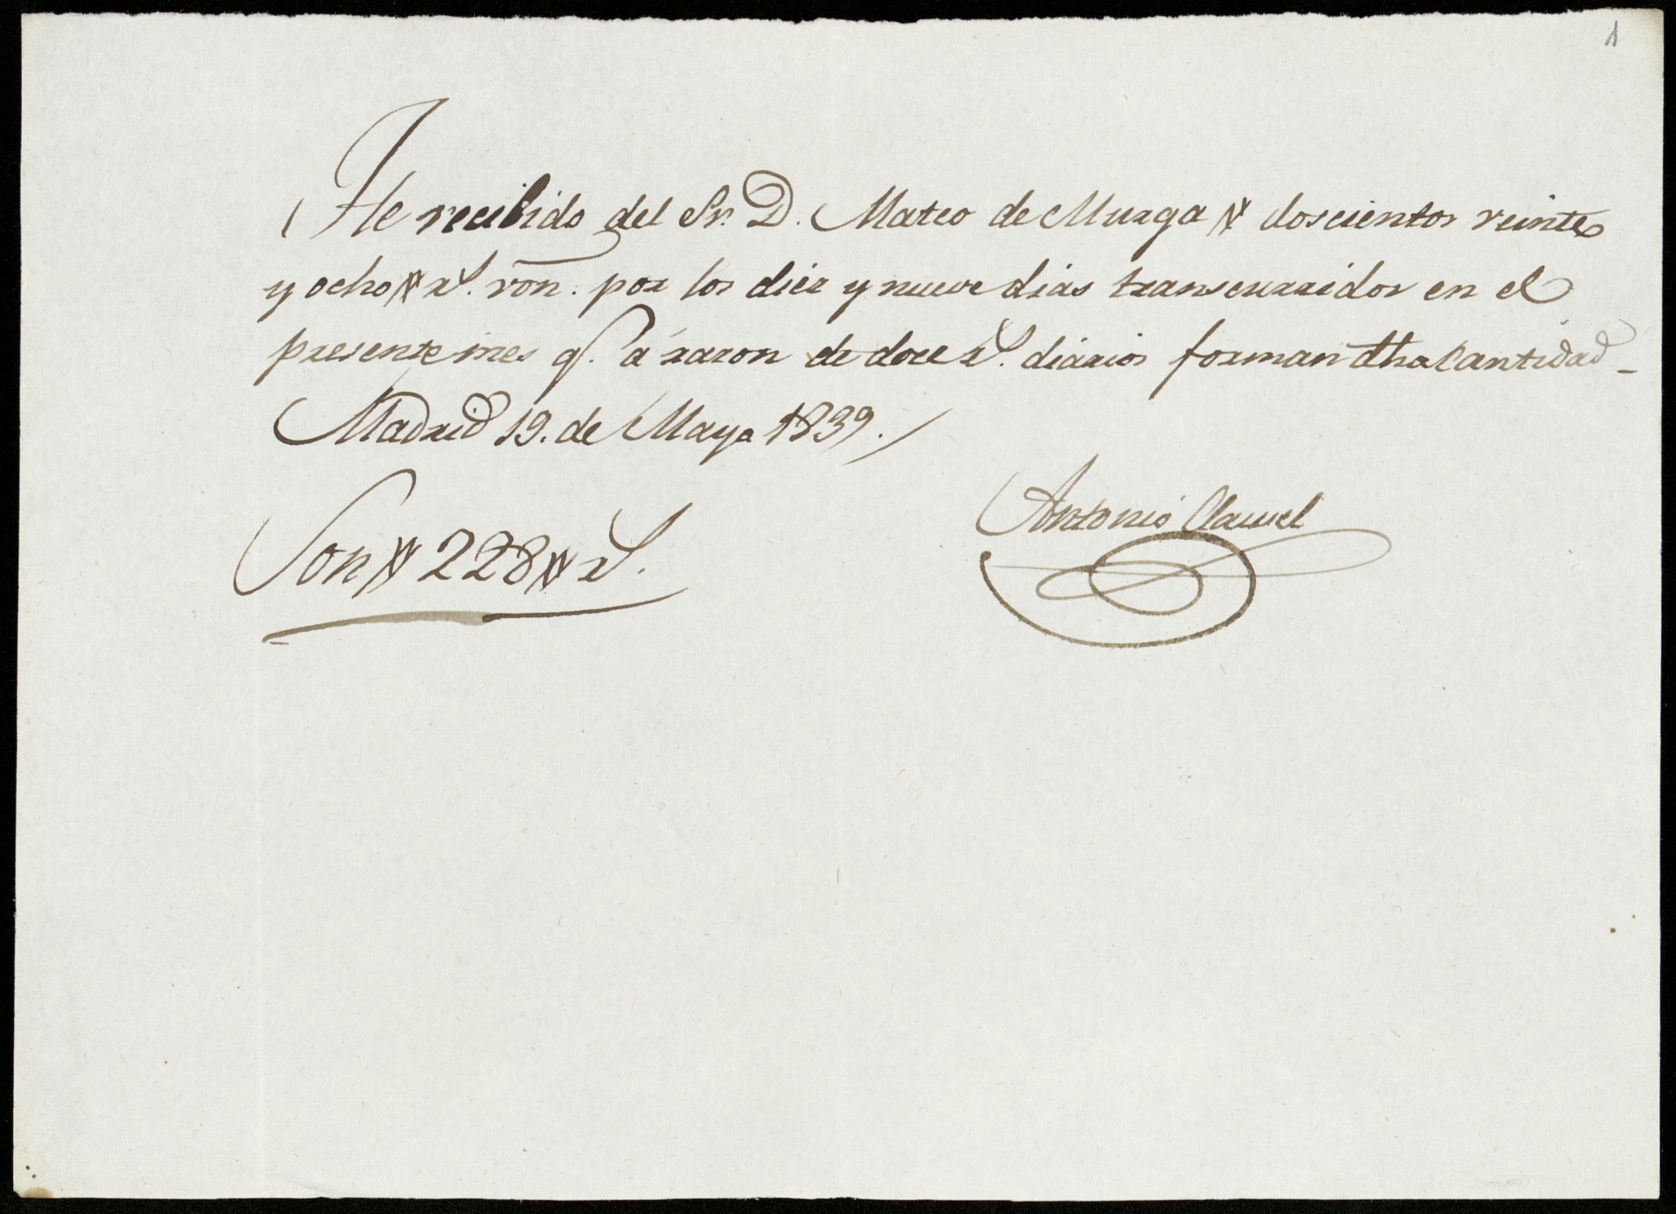 1
He recibido del Sr. D. Mateo de Murga # doscientos veinte
y ocho # rs. von. por los diez y nueve dias transcurridos en el
presente mes q. á razon de doce rs. diarios forman dha Cantidad_
Madrid 19. de Mayo 1839./
Antonio Clavvel
Son # 228 # rs.